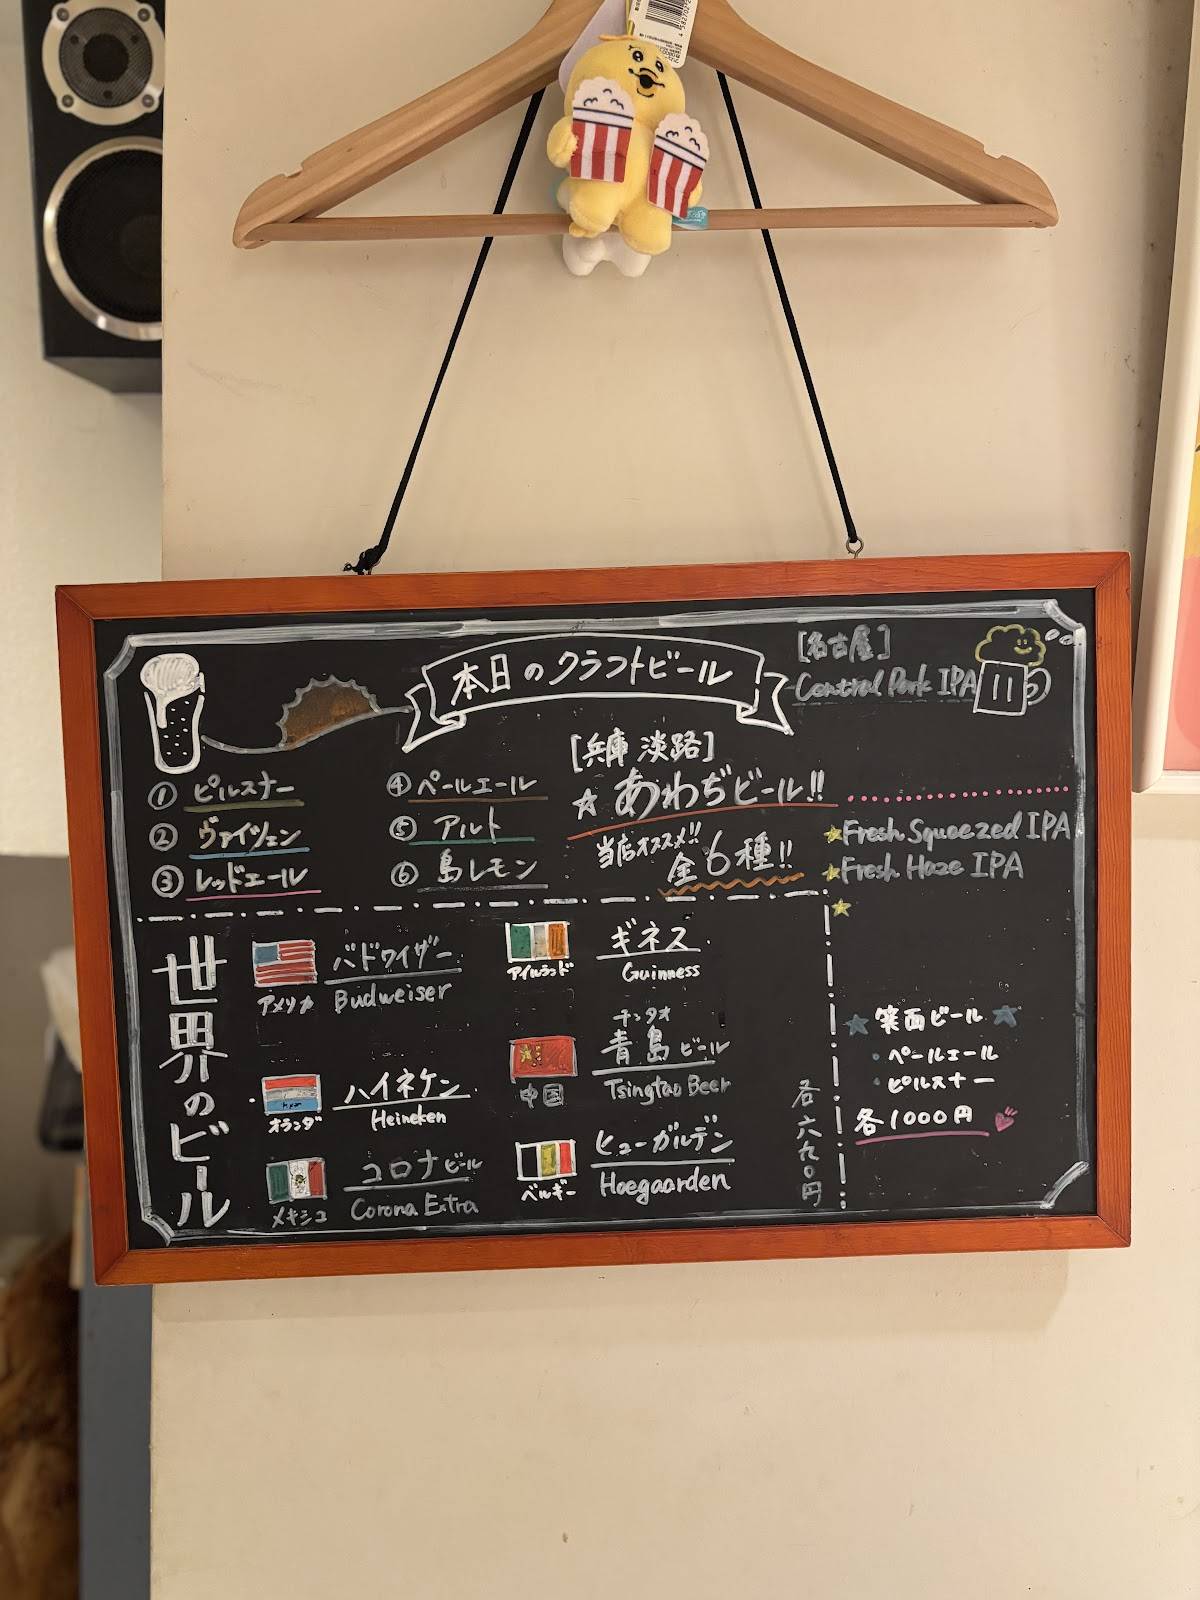 本日のクラフトビール
[名古屋]
Central Park IPA
① ピルスナー
② ヴァイツェン
③ レッドエール
④ ペールエール
⑤ アルト
⑥ 島レモン
[兵庫 淡路]
☆ あわぢビール!!
当店オススメ!!
全6種!!
Fresh Squeezed IPA
Fresh Haze IPA
世界のビール
アメリカ
バドワイザー
Budweiser
オランダ
ハイネケン
Heineken
メキシコ
コロナビール
Corona Extra
アイルランド
ギネス
Guinness
中国
チンタオ
青島ビール
Tsingtao Beer
ベルギー
ヒューガルデン
Hoegaarden
各六九〇円
★ 箕面ビール ★
・ペールエール
・ピルスナー
各1000円